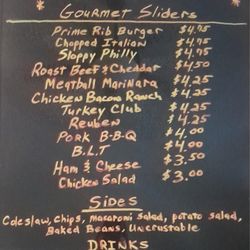 Gourmet Sliders
Prime Rib Burger $4.75
Chopped Italian $4.75
Sloppy Philly $4.75
Roast Beef & Cheddar $4.50
Meatball Marinara $4.25
Chicken Bacon Ranch $4.25
Turkey Club $4.25
Reuben $4.25
Pork B-B-Q $4.00
B.L.T $4.00
Ham & Cheese $3.50
Chicken Salad $3.00
Sides
Coleslaw, Chips, macaroni salad, potato salad,
Baked Beans, Uncrustable
DRINKS